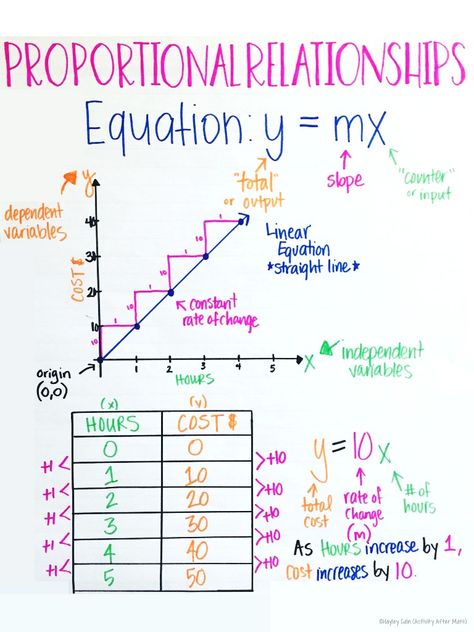 PROPORTIONAL RELATIONSHIPS
Equation: y = mx
"total"
or output
slope
"counter"
or input
dependent
variables
y
COST $
40
30
20
10
10
1
10
1
10
1
10
1
Linear
Equation
*straight line*
constant
rate of change
origin
(0,0)
1 2 3 4 5
HOURS
x
independent
variables
(x) (y)
HOURS COST $
0 0
1 10
2 20
3 30
4 40
5 50
+1 +10
+1 +10
+1 +10
+1 +10
+1 +10
y = 10x
total
cost
rate of
change
(m)
# of
hours
As HOURS increase by 1,
cost increases by 10.